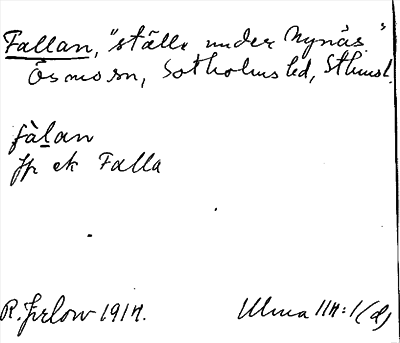 Fallan, "ställe under Nynäs."
Ösmo sn, Sotholms hd, Sthmsl.
fàlan
jfr ek Falla
1917.
Ulma 117:1(d)